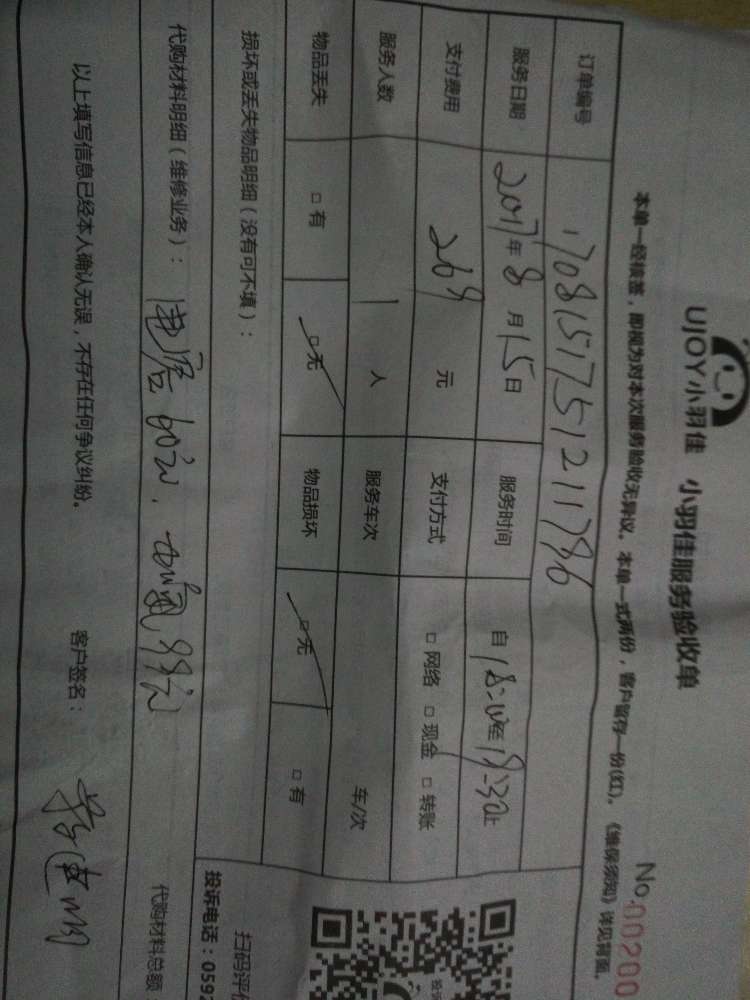 UJOY小羽佳 小羽佳服务验收单
No.00200
本单一经核签，即视为对本次服务验收无异议。本单一式两份，客户留存一份(红)。《维保须知》详见背面。
订单编号 170815175121178 6
服务日期 2017年8月15日 服务时间 自18:10至19:30止
支付费用 269 元 支付方式 □网络 □现金 □转账
服务人数 1 人 服务车次 车/次
物品丢失 □有 □无 物品损坏 □无 □有
损坏或丢失物品明细（没有可不填）：
扫码评价
投诉电话：0592
代购材料明细（维修业务）： 60元， 99元
代购材料总额
以上填写信息已经本人确认无误，不存在任何争议纠纷。 客户签名：